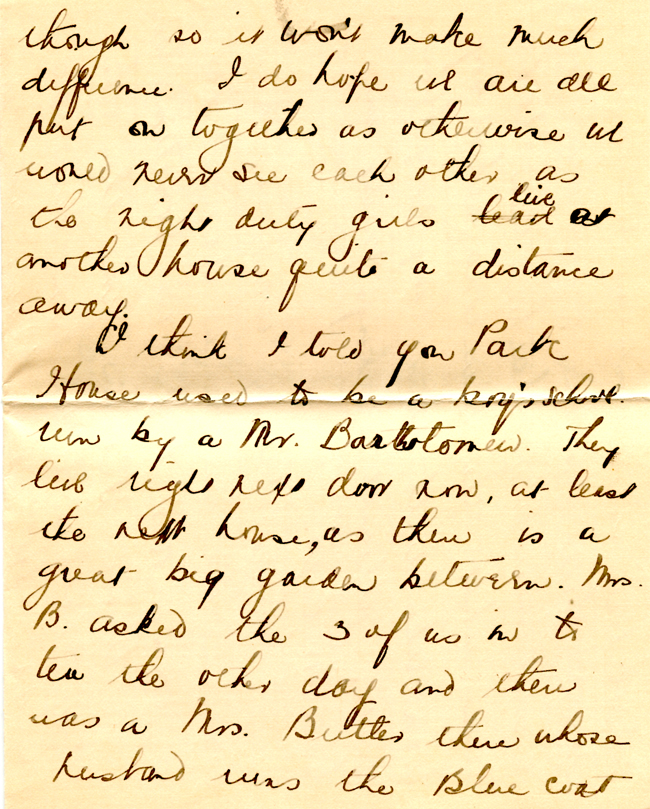 though so it won't make much
difference. I do hope we are all
put on together as otherwise we
would never see each other as
the night duty girls live at
another house quite a distance
away.
I think I told you Park
House used to be a boy's school
run by a Mr. Bartholomew. They
live right next door now, at least
the next house, as there is a
great big garden between. Mrs.
B. asked the 3 of us in to
tea the other day and there
was a Mrs. Butler there whose
husband runs the Blue coat